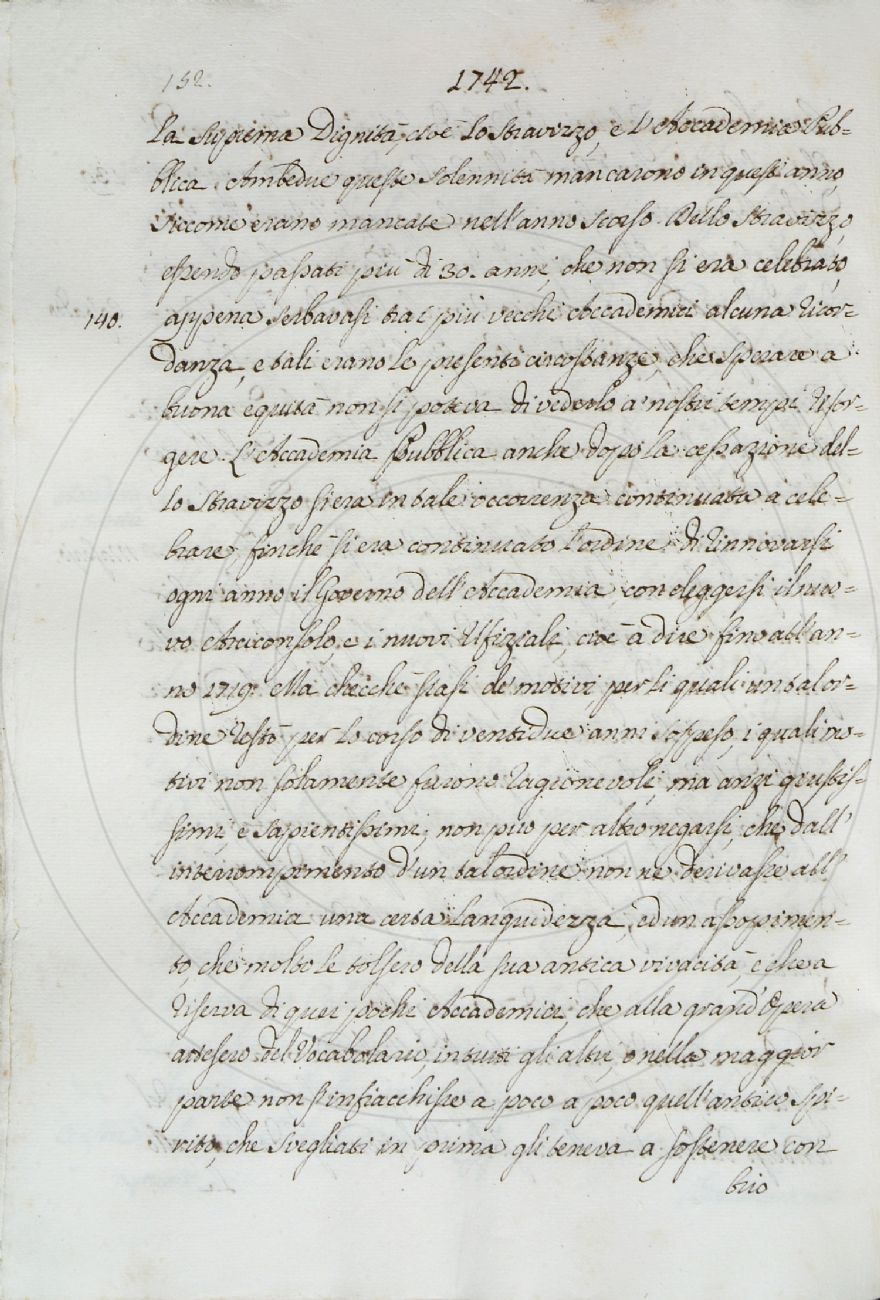 152.
1742.
la suprema Dignità, cioè lo Stravizzo, e l'Accademia Pub-
blica. Ambedue queste solennità mancarono in quest'anno,
siccome erano mancate nell'anno scorso. Dello Stravizzo,
essendo passati più di 30. anni, che non si era celebrato,
140.
appena serbavasi tra i più vecchi Accademici alcuna ricor-
danza, e tali erano le presenti circostanze, che sperare a
buona equità non si poteva di vederlo a' nostri tempi risor-
gere. L'Accademia Pubblica anche dopo la cessazione del-
lo Stravizzo si era in tale occorrenza continuata a cele-
brare, finchè si era continuato l'ordine di rinnovarsi
ogni anno il Governo dell'Accademia, con eleggersi il nuo-
vo Arciconsolo, e i nuovi Ufiziali, cioè a dire fino all'an-
no 1719. Ma checchè siasi de' motivi, per li quali un tal or-
dine restò per lo corso di ventidue anni sospeso, i quali mo-
tivi non solamente furono ragionevoli, ma anzi giustis-
simi, e sapientissimi, non può per altro negarsi, che dall'
interrompimento d'un tal ordine non ne derivasse all'
Accademia una certa languidezza, ed un assopimen-
to, che molto le tolsero della sua antica vivacità, e che a
riserva di quei pochi Accademici, che alla grand'Opera
attesero del Vocabolario, in tutti gli altri, o nella maggior
parte non s'infiacchisse a poco a poco quell'antico spi-
rito, che svegliati in prima gli teneva a sostenere con
brio